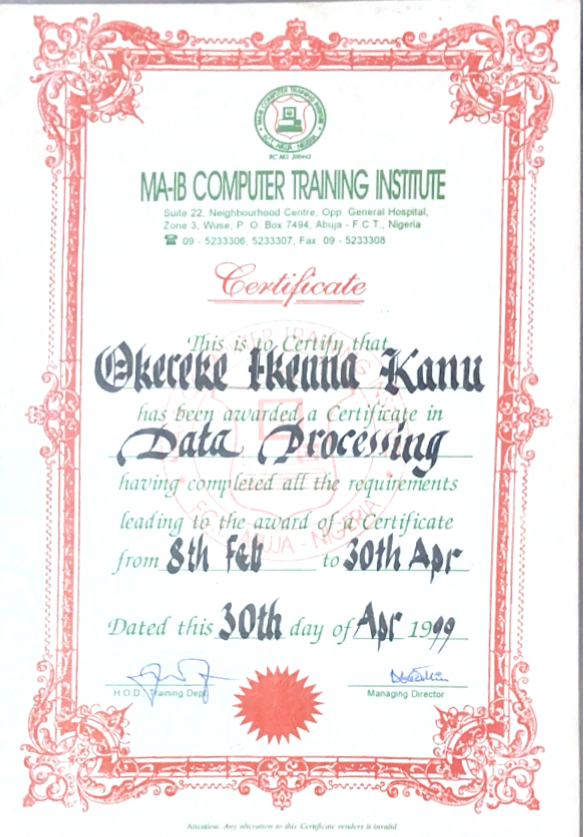 MA-IB COMPUTER TRAINING INSTITUTE
F.C.T. ABUJA - NIGERIA
MA-IB COMPUTER TRAINING INSTITUTE
Suite 22, Neighbourhood Centre, Opp. General Hospital,
Zone 3, Wuse, P. O. Box 7494, Abuja - F.C.T., Nigeria
☎ 09 - 5233306, 5233307, Fax: 09 - 5233308
Certificate
This is to Certify that
Okereke Ikenna Kanu
has been awarded a Certificate in
Data Processing
having completed all the requirements
leading to the award of a Certificate
from 8th Feb to 30th Apr
Dated this 30th day of Apr 1999
H.O.D. Training Dept
Managing Director
Attention: Any alteration to this Certificate renders it invalid